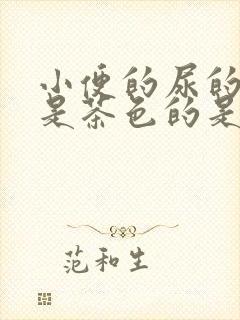 小便的尿的
是茶色的是
范和生